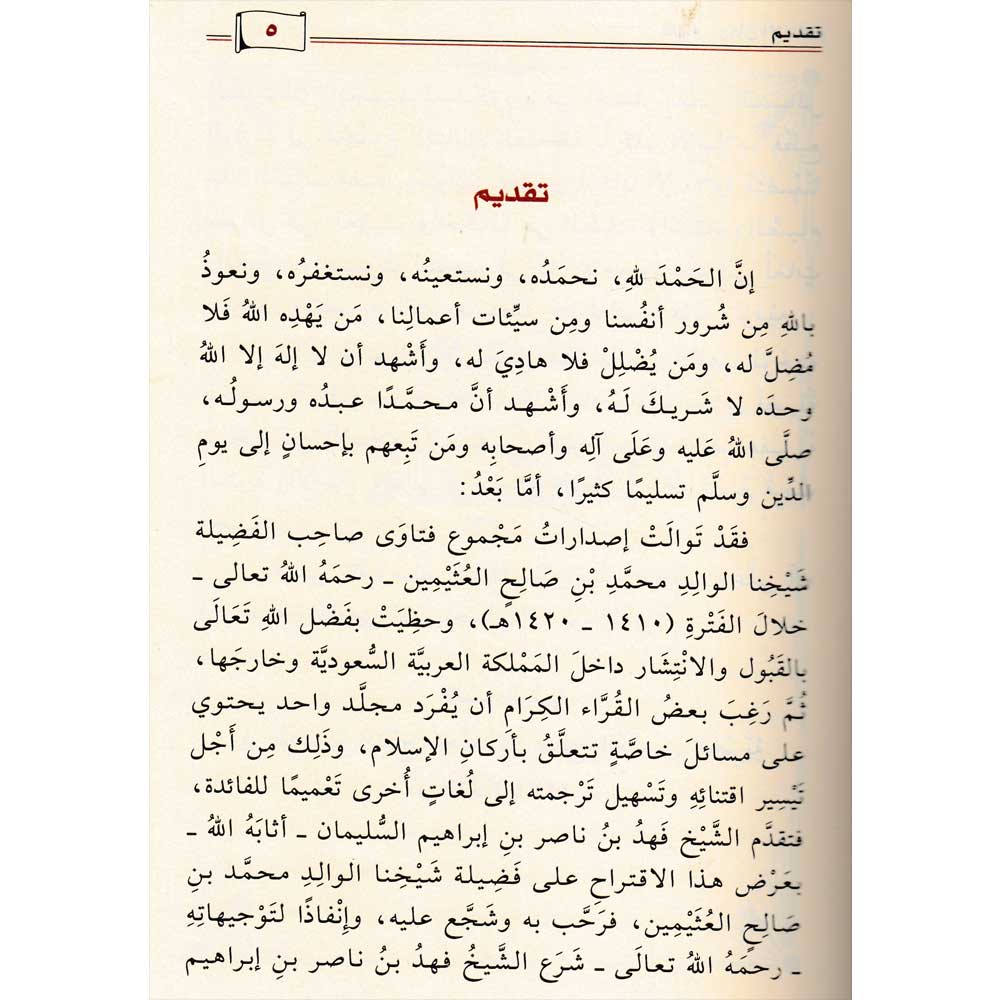 تقديم
٥
تقديم
إنَّ الحَمْدَ للهِ، نحمَدُه، ونستعينُه، ونستغفرُه، ونعوذُ
باللهِ مِن شُرور أنفُسنا ومِن سيِّئات أعمالِنا، مَن يَهْدِه اللهُ فَلا
مُضِلَّ له، ومَن يُضْلِلْ فلا هادِيَ له، وأَشْهد أن لا إلهَ إلا اللهُ
وحدَه لا شَريكَ لَهُ، وأَشْهد أنَّ محمَّدًا عبدُه ورسولُه،
صلَّى اللهُ عَليه وعَلَى آلِه وأصحابِه ومَن تَبِعهم بإحسانٍ إلى يومِ
الدِّين وسلَّم تسليمًا كثيرًا، أمَّا بَعْدُ:
فقَدْ تَوالَتْ إصداراتُ مَجْموع فتاوَى صاحِب الفَضِيلة
شَيْخِنا الوالِدِ محمَّدِ بْنِ صَالِحٍ العُثَيْمِين ـ رحمَهُ اللهُ تعالى ـ
خلالَ الفَتْرةِ (١٤١٠ ـ ١٤٢٠هـ)، وحظِيَتْ بفَضْل اللهِ تَعَالَى
بالقَبُول والانْتِشَار داخلَ المَمْلكة العربيَّة السُّعوديَّة وخارجَها،
ثُمَّ رَغِبَ بعضُ القُرَّاء الكِرَامِ أن يُفْرَد مجلَّد واحد يحتوي
على مسائلَ خاصَّةٍ تتعلَّقُ بأركانِ الإسلام، وذَلِك مِن أَجْل
تَيْسِير اقتنائِهِ وتَسْهيل تَرْجمته إلى لُغاتٍ أُخرى تَعْميمًا للفائدة،
فتقدَّم الشَّيْخ فَهدُ بنُ ناصر بنِ إبراهيم السُّليمان ـ أثابَهُ اللهُ ـ
بعَرْض هذا الاقتراحِ على فَضِيلة شَيْخِنا الوالِدِ محمَّد بنِ
صَالِحٍ العُثَيْمِين، فرَحَّب به وشَجَّع عليه، وإِنْفاذًا لتَوْجيهاتِهِ
ـ رحمَهُ اللهُ تعالَى ـ شَرَع الشَّيخُ فهدُ بنُ ناصر بنِ إبراهيم